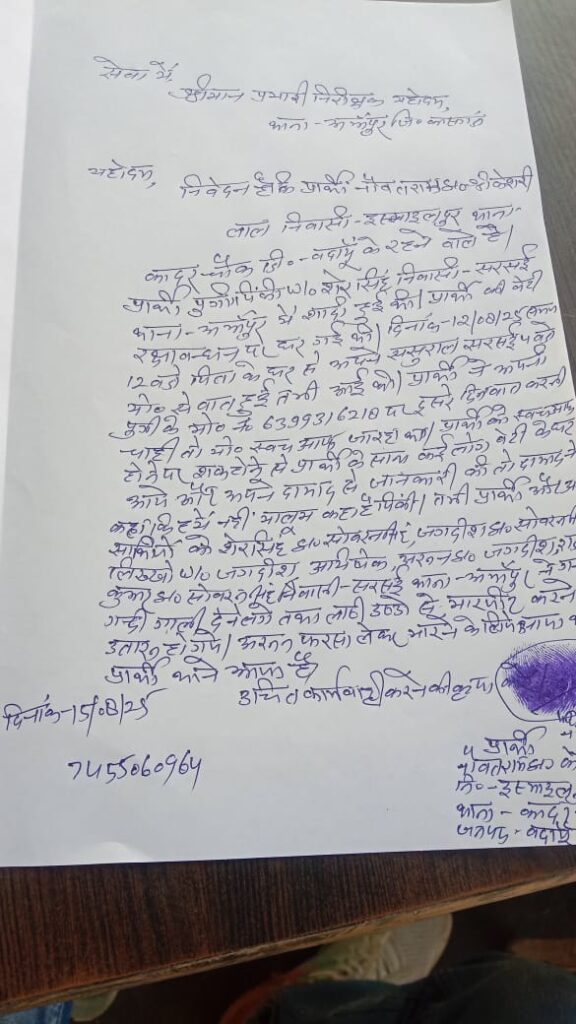 सेवा में,
श्रीमान प्रभारी निरीक्षक महोदय,
थाना - जि० कासगंज
महोदय,
निवेदन है कि प्रार्थी नौवतराम s/o श्री केशरी
लाल निवासी - इस्माइलपुर थाना -
कादर चौक जि० - बदायूँ के रहने वाले है।
प्रार्थी पुत्री पिंकी w/o शेर सिंह निवासी - सरसई
थाना - में शादी हुई थी। प्रार्थी की बेटी
रक्षाबन्धन पर घर गई थी। दिनांक - 12/08/25 समय
12 बजे पिता के घर से अपने ससुराल सरसई
मो० से बात हुई तभी आई थी। प्रार्थी ने अपनी
पुत्री के मो० नं० 6399316218 पर दूसरे दिन बात करनी
चाही तो मो० स्वच आफ जा रहा था। प्रार्थी को स्वच आफ
होने पर शक होने से प्रार्थी के साथ कई लोग बेटी के घर
आये और अपने दामाद से जानकारी की तो दामाद ने
कहा कि हमें नहीं मालूम कहाँ है पिंकी। तभी प्रार्थी और
साथियों को शेरसिंह s/o सोवरन सिंह, जगदीश s/o सोवरन
w/o जगदीश अभिषेक, s/o जगदीश,
s/o सोवरन सिंह निवासी - सरसई थाना - ने
गन्दी गाली देने लगे तथा लाठी डण्डे से मारपीट करने
उतारू हो गये। फरसा लेकर मारने के लिए आया
प्रार्थी थाने आया है।
उचित कार्यवाही करने की कृपा
दिनांक - 15/08/25
7455060964
प्रार्थी
नौवतराम s/o के
नि० - इस्माइल
थाना - कादर
जनपद - बदायूँ